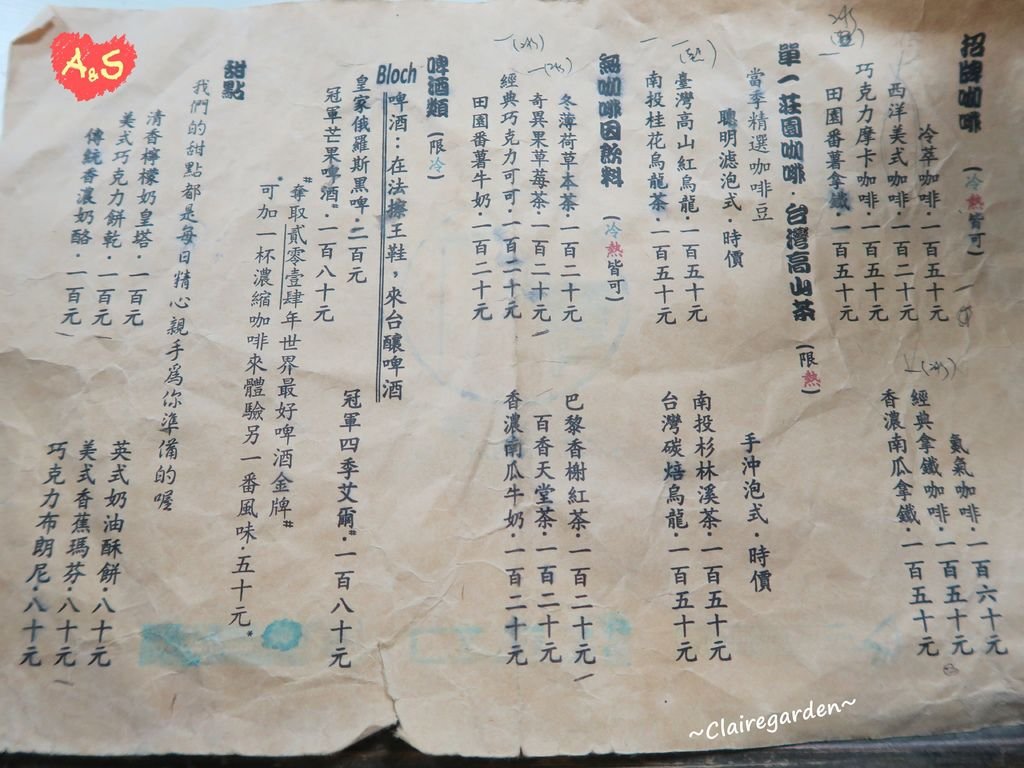 招牌咖啡 (冷熱皆可)
冷萃咖啡·一百五十元
氮氣咖啡·一百六十元
西洋美式咖啡·一百二十元
經典拿鐵咖啡·一百五十元
巧克力摩卡咖啡·一百五十元
香濃南瓜拿鐵·一百五十元
田園番薯拿鐵·一百五十元
單一莊園咖啡·台灣高山茶 (限熱)
當季精選咖啡豆
聰明濾泡式·時價
手沖泡式·時價
臺灣高山紅烏龍·一百五十元
南投杉林溪茶·一百五十元
南投桂花烏龍茶·一百五十元
台灣碳焙烏龍·一百五十元
無咖啡因飲料 (冷熱皆可)
冬薄荷草本茶·一百二十元
巴黎香榭紅茶·一百二十元
奇異果草莓茶·一百二十元
百香天堂茶·一百二十元
經典巧克力可可·一百二十元
香濃南瓜牛奶·一百二十元
田園番薯牛奶·一百二十元
啤酒類 (限冷)
Bloch啤酒:在法擦王鞋,來台釀啤酒
皇家俄羅斯黑啤·二百元
冠軍四季艾爾#·一百八十元
冠軍芒果啤酒#·一百八十元
#奪取貳零壹肆年世界最好啤酒金牌#
*可加一杯濃縮咖啡來體驗另一番風味·五十元*
甜點
我們的甜點都是每日精心親手為你準備的喔
清香檸檬奶皇塔·一百元
英式奶油酥餅·八十元
美式巧克力餅乾·一百元
美式香蕉瑪芬·八十元
傳統香濃奶酪·一百元
巧克力布朗尼·八十元
A&S
~Clairegarden~